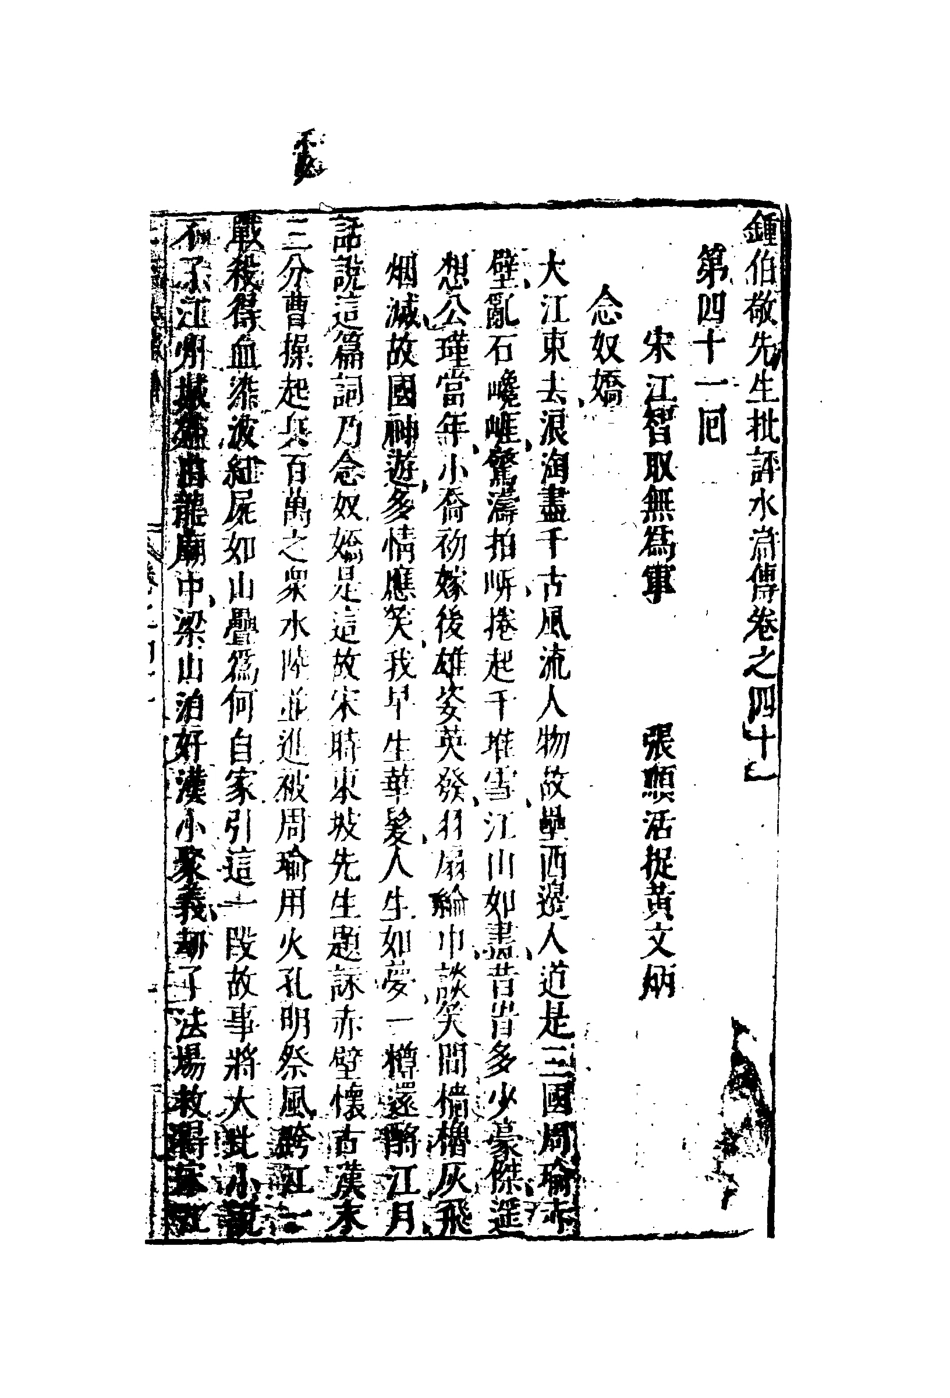 鍾伯敬先生批評水滸傳卷之四十一
第四十一回
宋江智取無爲軍　張順活捉黃文炳
念奴嬌
大江東去浪淘盡千古風流人物故壘西邊人道是三國周瑜赤
壁亂石巉崕驚濤拍岍捲起千堆雪江山如畫昔皆多少豪傑遥
想公瑾當年小喬初嫁後雄姿英發羽扇綸巾談笑間檣櫓灰飛
烟滅故國神遊多情應笑我早生華髮人生如夢一樽還酹江月
話說這篇詞乃念奴嬌是這故宋時東坡先生題詠赤壁懷古漢末
三分曹操起兵百萬之衆水陸並進被周瑜用火孔明祭風跨江一
戰殺得血染波紅屍如山疊爲何自家引這一段故事將大比小說
不了江州城外白龍廟中梁山泊好漢小聚義刼了法場救得宋江